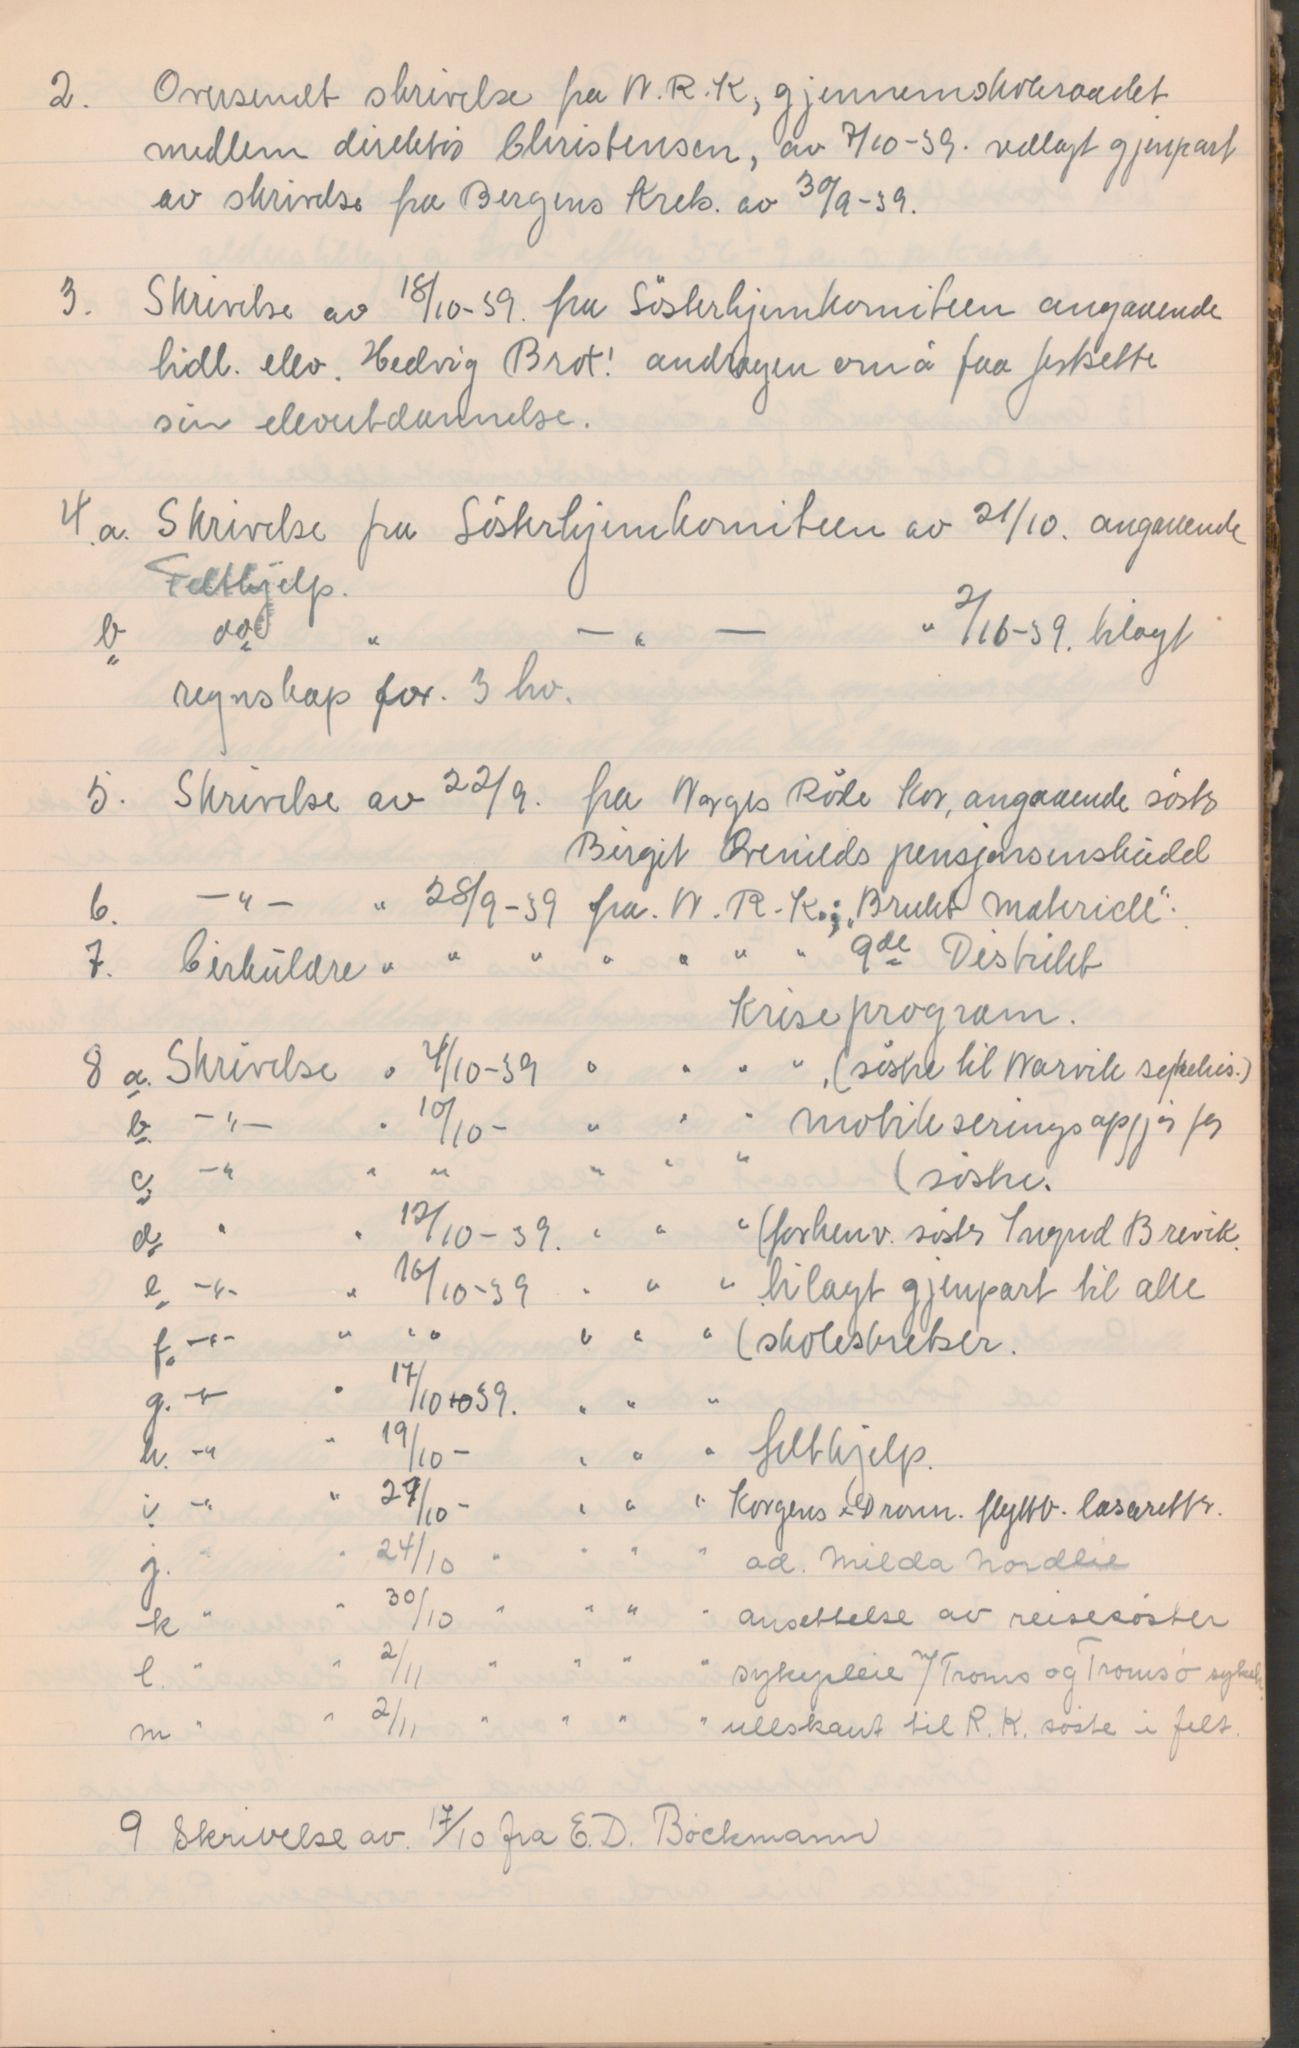 2. Oversendt skrivelse fra N.R.K, gjennem skoleraadet
medlem direktør Christensen, av 7/10-39. vedlagt gjenpart
av skrivelse fra Bergens Krek. av 30/9-39.
3. Skrivelse av 18/10-39. fra Søsterhjemkomiteen angaaende
tidl. elev. Hedvig Brot! andragen om å faa fortsette
sin elevutdannelse.
4.a. Skrivelse fra Søsterhjemkomiteen av 21/10. angaaende
Felthjelp.
b do " — " — " 2/10-39. bilagt
regnskap for. 3 kv.
5. Skrivelse av 22/9. fra Norges Røde Kor, angaaende søster
Birgit pensjonsinskudd
6. -"- " 28/9-39 fra. N.R.K.; "Brukt Materiell".
7. Cirkulære " " " " " " " 9de Distrikt
Kriseprogram.
8 a. Skrivelse " 4/10-39 " " " ", (søstre til Narvik sykehus.)
b. -"- " 10/10- " " " mobiliseringsopgjør for
c. -" " " " " " (søstre.
d. " " 12/10-39. " " " (forhenv. søster Ingrid Brevik.
e. -"- " 16/10-39 " " " bilagt gjenpart til alle
f. -"- " " " " " " (skolestyrelser.
g. -" " 17/10-39. " " "
h. -" " 19/10- " " " felthjelp.
i -" " 27/10- " " " Kongens & Dronn. flyttb. lasaretter.
j. " " 24/10 " " " " ad. Milda Nordlie
k " " 30/10 " " " " ansettelse av reisesøster
l. " " 2/11 " " " " sykepleie i Troms og Tromsø sykeh.
m " " 2/11 " " " " ullskaut til R.K. søstre i felt.
9 Skrivelse av. 17/10 fra E.D. Bøckmann